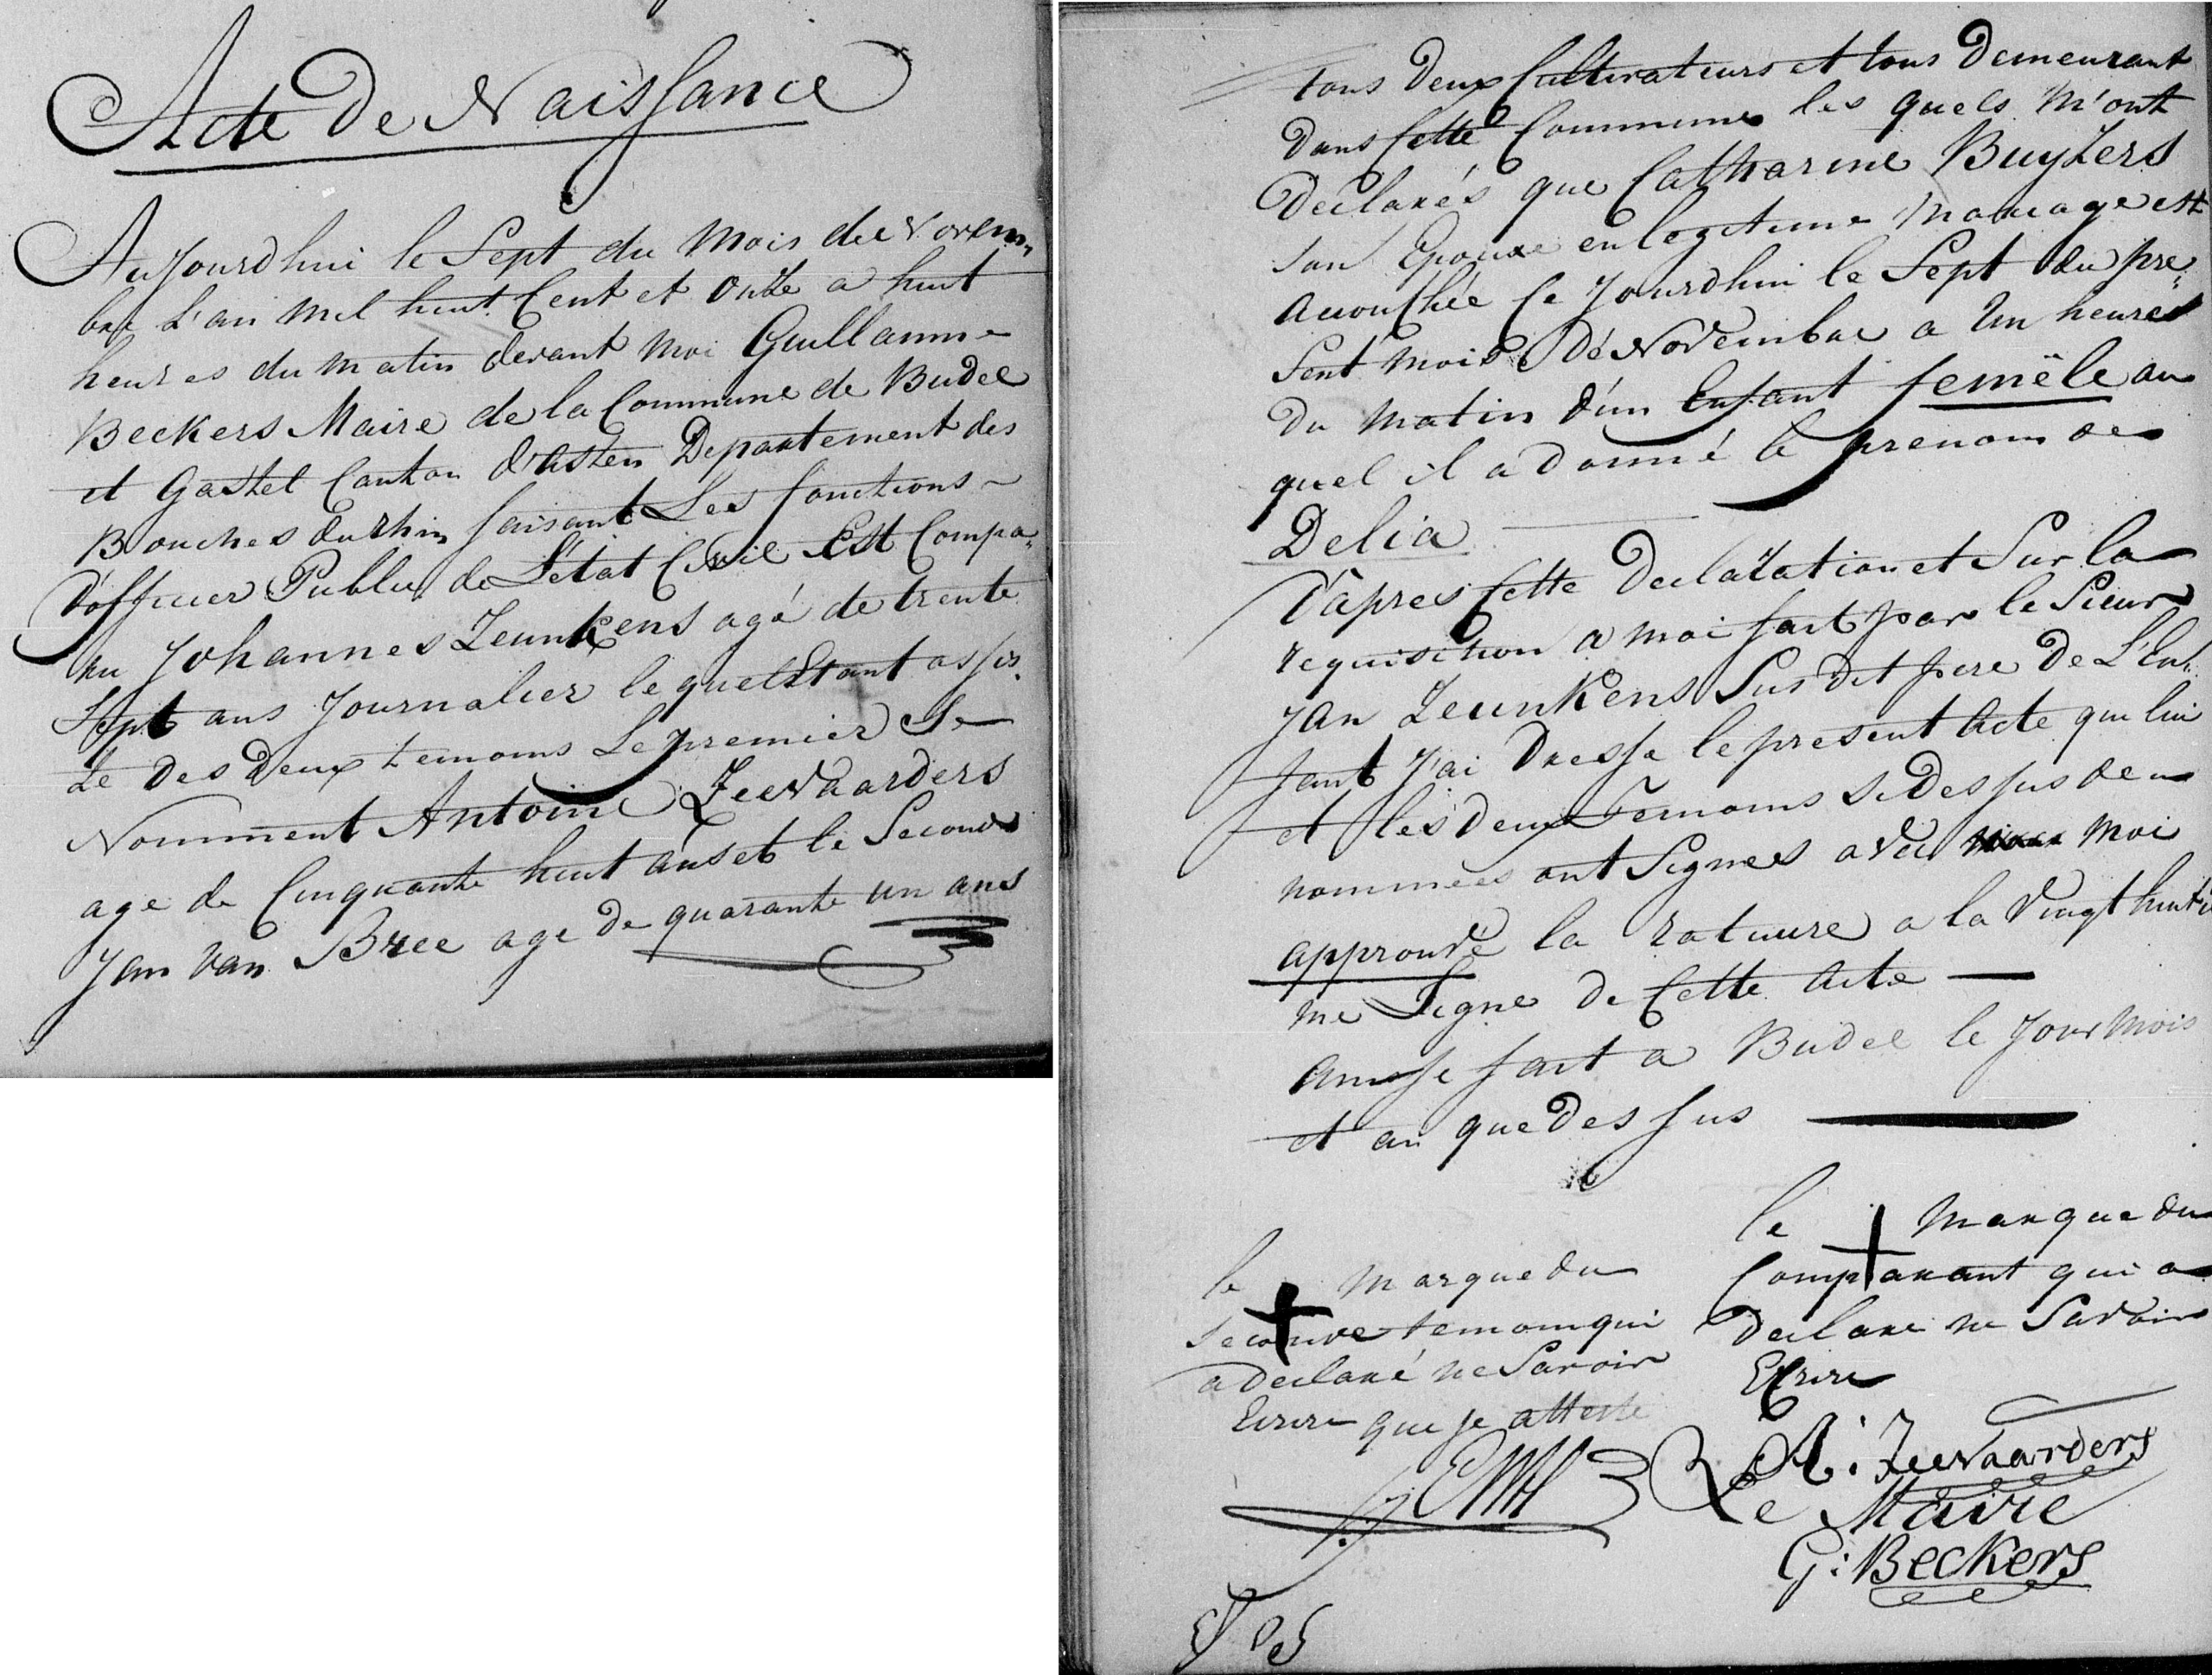 Acte De Naissance
Aujourdhui le Sept du Mois de Novem„
bre L'an Mil huit Cent et Onze a huit
heures du matin devant Moi Guillaume
Beckers Maire de la Commune de Budel
et Gastel Canton d'Asten Departement des
Bouches du rhin faisant Les fonctions
D'officier Public de L'état Civil Est Compa„
ru Johannes Leunkens agé de trente
Sept ans Journalier le quel Etant assis„
te Des Deux temoins Le premier Se
Nomment Antoine Zeevaarders
age de Cinquante huit ans et le Second
Jan Van Bree age De quarante un ans
tous Deux Cultivateurs et tous Demeurant
Dans Cette Commune les quels M'ont
Declarés que Catharine Buyzers
son Epouse en legitime Mariage est
accouchée Ce Jourdhui le Sept du pre„
sent Mois De Novembre a Un heures
Du Matin D'un Enfant femële au
quel il a Donné le prenom de
Delia
D'apres Cette Declaration et Sur la
requisition a moi fait par le Sieur
Jan Leunkens Sus Dit pere De L'En„
fant J'ai Dresse le present Acte que lui
et les Deux Temoins si Dessus de
nommées ont Signes avec moi
approuvé la rature a la Vingt huitie
me Ligne De Cette Acte
ainsse fait a Budel le Jour Mois
et an que Dessus
le + Marque du
Comparant qui a
Declare ne Savoir
Ecrire
le + Marque du
seconde temoin qui
a declaré ne Savoir
Ecrire que je atteste
A: Zeevaarders
Le Maire
G: Beckers